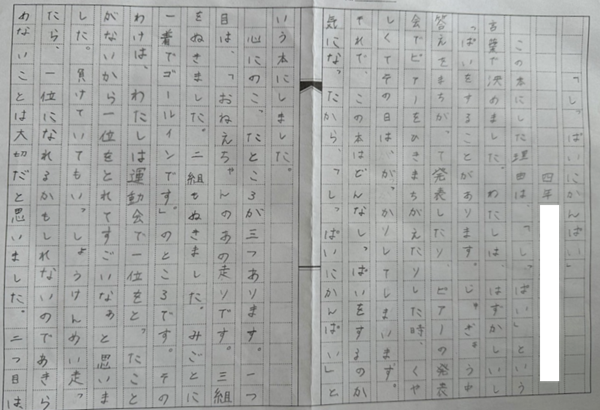 「しっぱいにかんぱい」
四年
この本にした理由は、「しっぱい」という
言葉で決めました。わたしは、はずかしいし
っぱいをすることがあります。じゅぎょう中
答えをまちがって発表したり、ピアノの発表
会でピアノをひきまちがえたりした時、くや
しくてその日は、がっかりしてしまいます。
それで、この本はどんなしっぱいをするのか
気になったから、「しっぱいにかんぱい」と
いう本にしました。
心にのこったところが三つあります。一つ
目は、「おねえちゃんのあの走りです。三組
をぬきました。二組もぬきました。みごとに
一着でゴールインです。」のところです。その
わけは、わたしは運動会で一位をとったこと
がないから一位をとれてすごいなぁと思いま
した。負けていてもいっしょうけんめい走っ
たら、一位になれるかもしれないのであきら
めないことは大切だと思いました。二つ目は